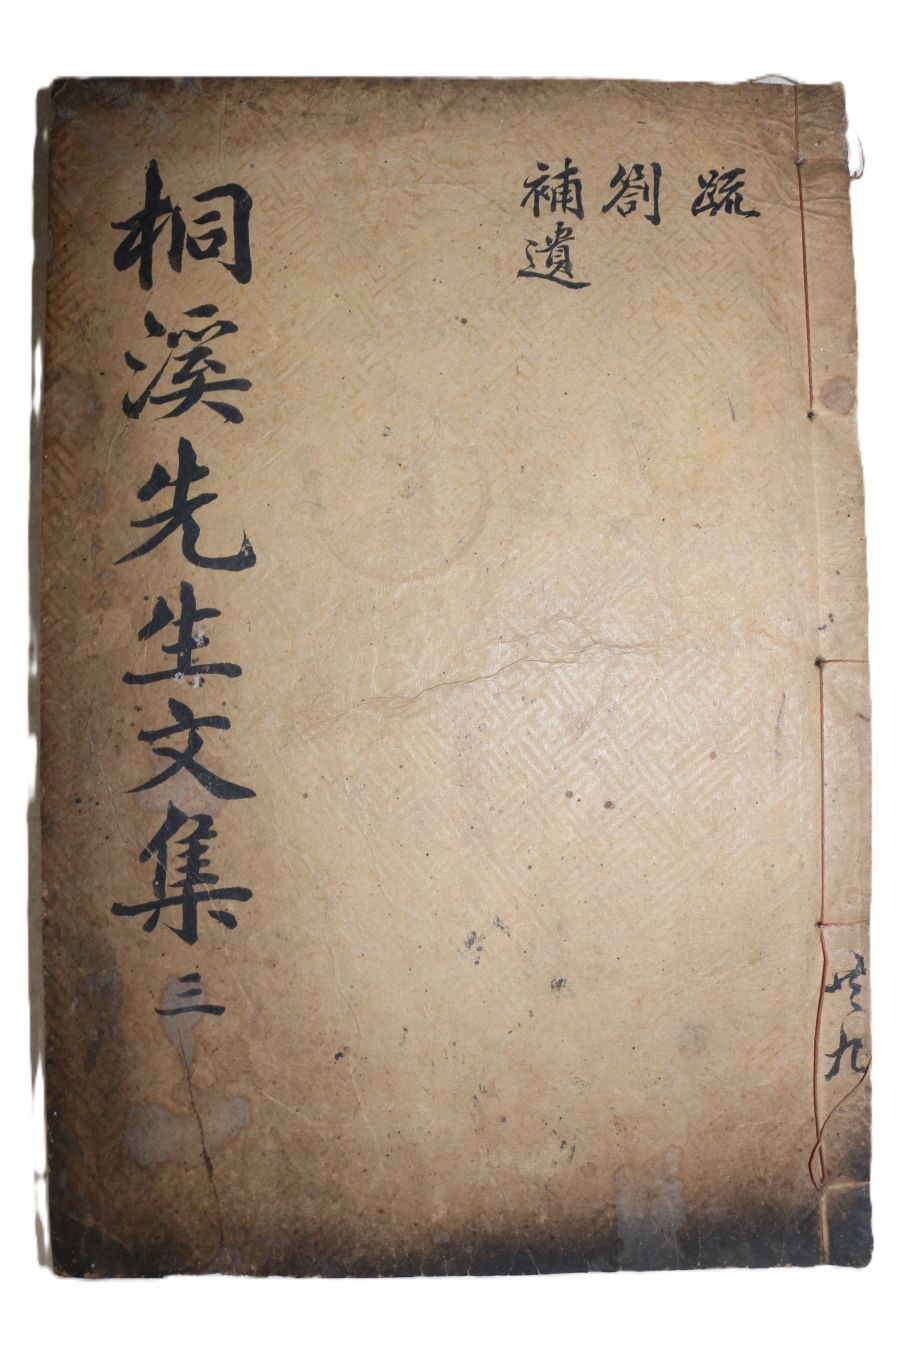 䟽
劄
補遺
桐溪先生文集 三
共九